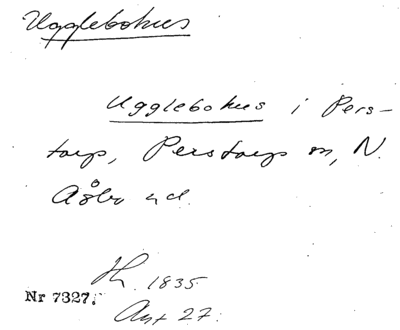 Ugglebohus
Ugglebohus i Pers-
torp, Perstorps sn, N.
Åsbo hd.
1835
Nr 7327.
27.